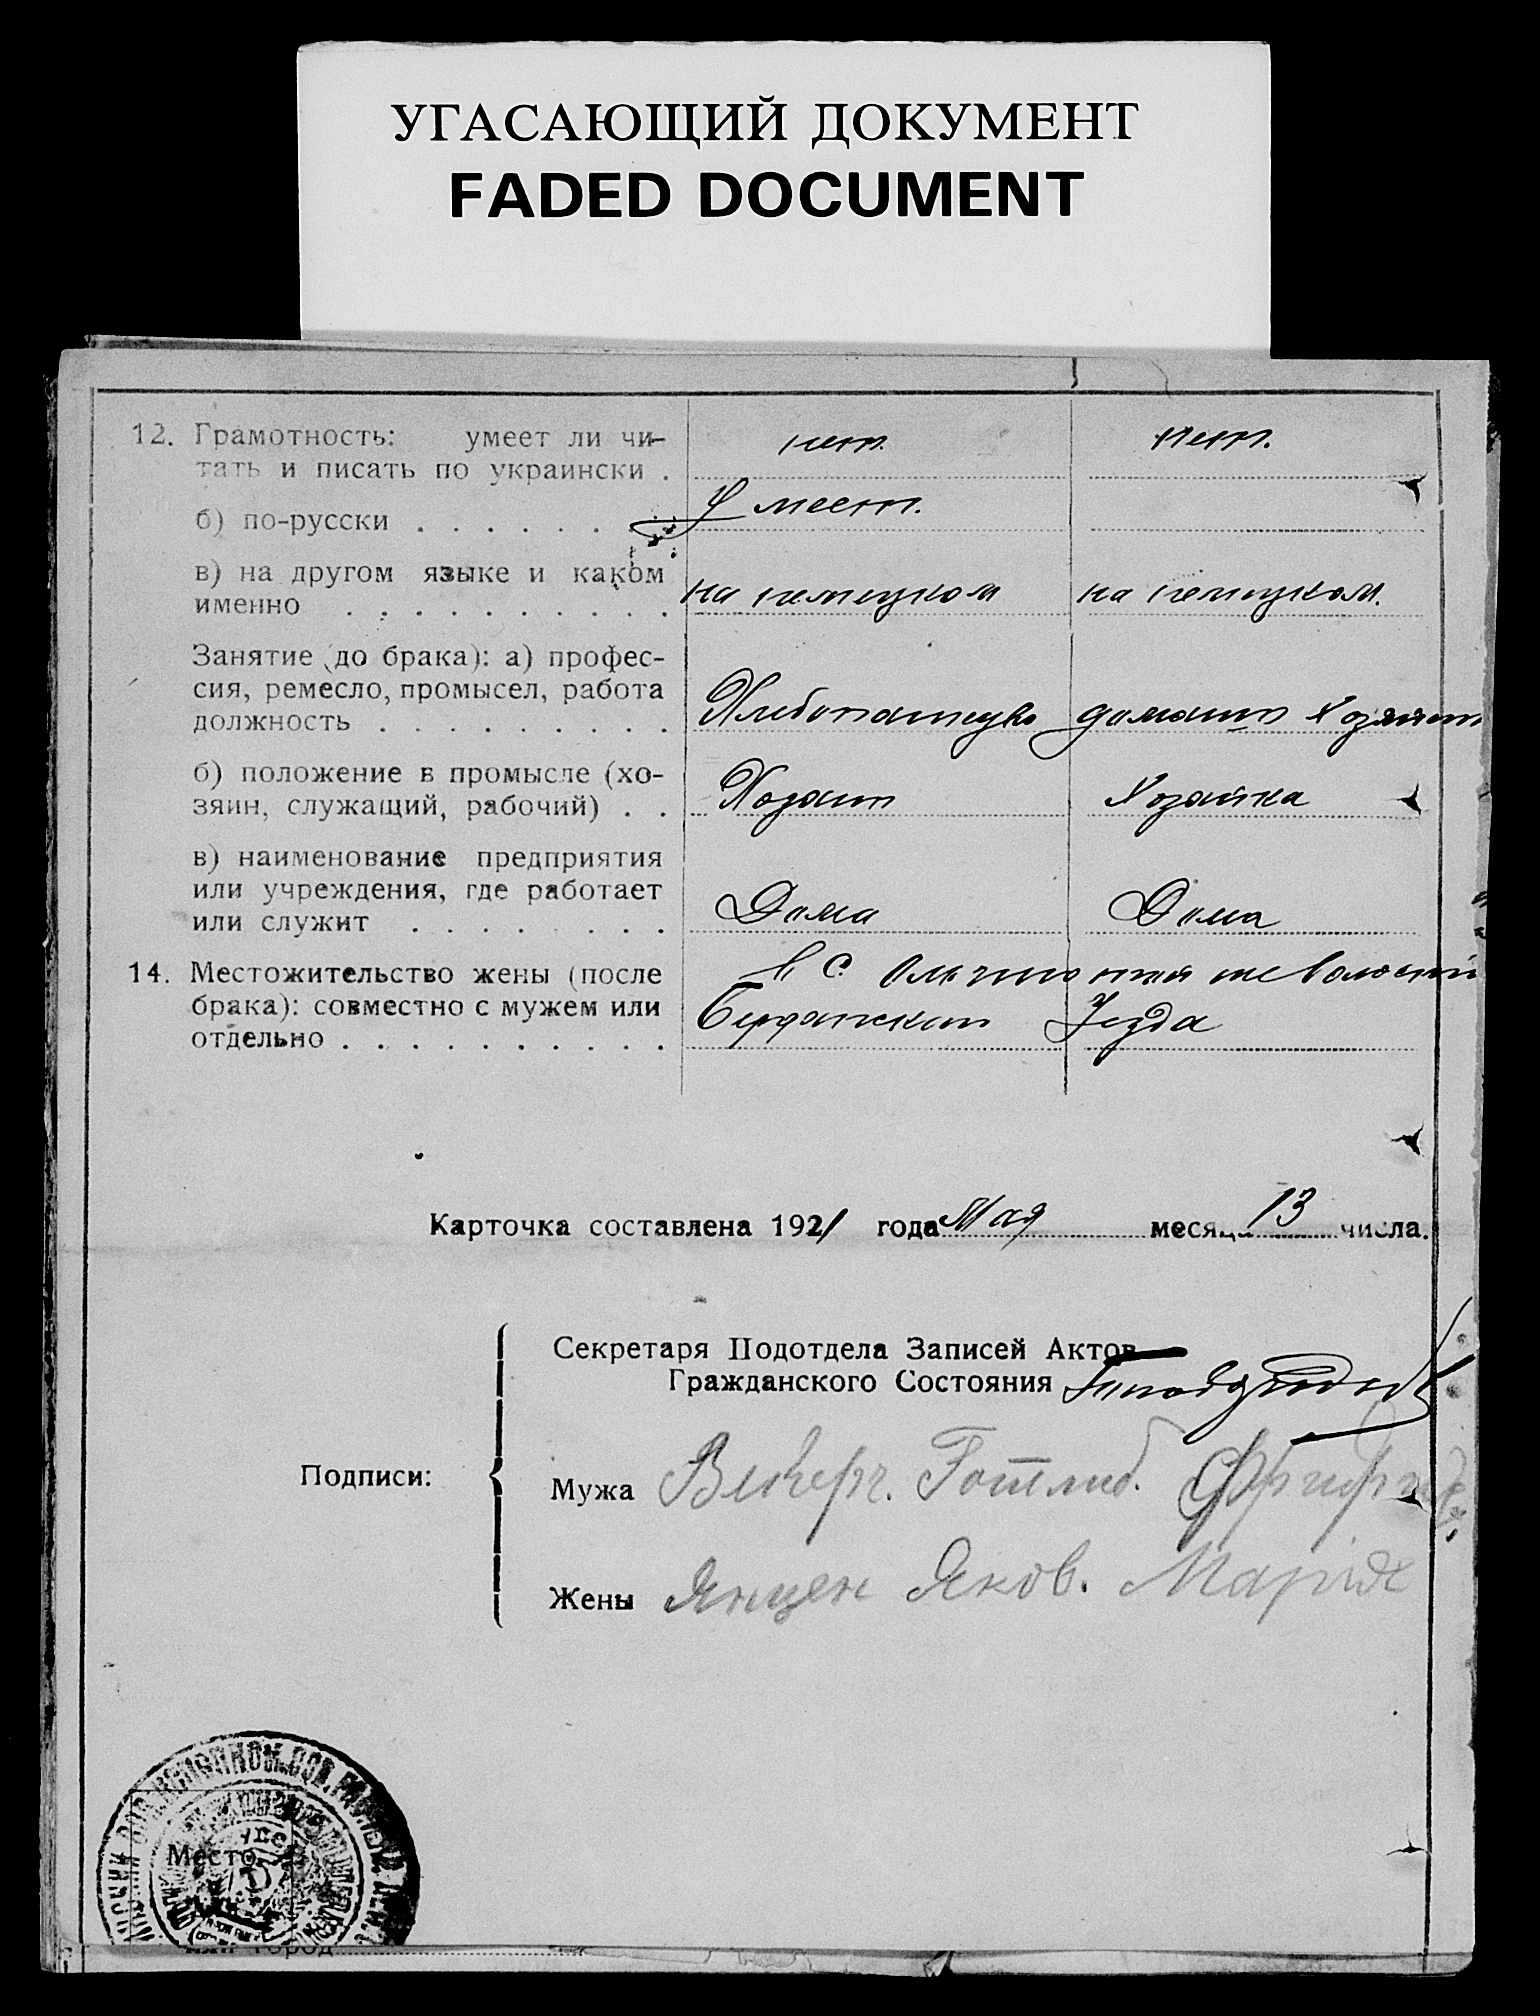 УГАСАЮЩИЙ ДОКУМЕНТ
FADED DOCUMENT
12. Грамотность: умеет ли чи- нет. нет.
тать и писать по украински .
б) по-русски . . . . . . умеет.
в) на другом языке и каком
именно . . . . . . . . . . на немецком на немецком.
Занятие (до брака): а) профес-
сия, ремесло, промысел, работа
должность . . . . . . . . . Хлебопашество домашн хозяйст
б) положение в промысле (хо-
зяин, служащий, рабочий) . . Хозяин Хозяйка
в) наименование предприятия
или учреждения, где работает
или служит . . . . . . . . Дома Дома
14. Местожительство жены (после в С.
брака): совместно с мужем или Бердянскаго Уезда
отдельно . . . . . . . . . .
Карточка составлена 1921 года Мая месяца 13 числа.
Секретаря Подотдела Записей Актов
Гражданского Состояния
Подписи:
Мужа Готлиб.
Жены Янцен Яков. Мария
Место
или город